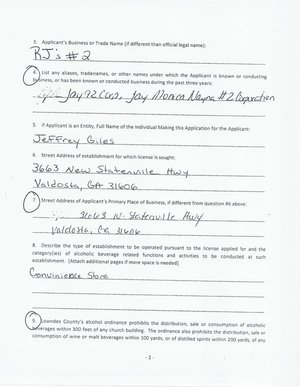 3. Applicant's Business or Trade Name (if different than official legal name):
RJ's # 2
4. List any aliases, tradenames, or other names under which the Applicant is known or conducting
business, or has been known or conducted business during the past three years:
Jay 92 Corp, Jay Monica Nayna #2 Corporation
5. If Applicant is an Entity, Full Name of the Individual Making this Application for the Applicant:
Jeffrey Giles
6. Street Address of establishment for which license is sought:
3663 New Statenville Hwy
Valdosta, GA 31606
7. Street Address of Applicant's Primary Place of Business, if different from question #6 above:
3663 N. Statenville Hwy
Valdosta, Ga 31606
8. Describe the type of establishment to be operated pursuant to the license applied for and the
category(ies) of alcoholic beverage related functions and activities to be conducted at such
establishment. [Attach additional pages if more space is needed]
Convinience Store
9. Lowndes County's alcohol ordinance prohibits the distribution, sale or consumption of alcoholic
beverages within 300 feet of any church building. The ordinance also prohibits the distribution, sale or
consumption of wine or malt beverages within 100 yards, or of distilled spirits within 200 yards, of any
- 2 -